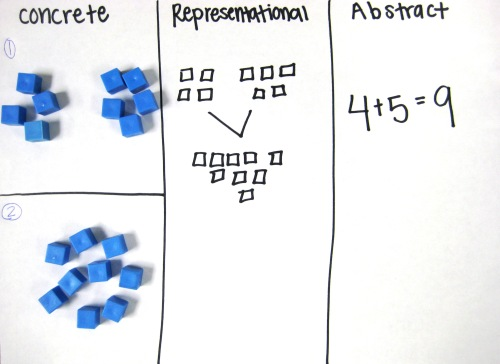 concrete
Representational
Abstract
1
2
4+5=9